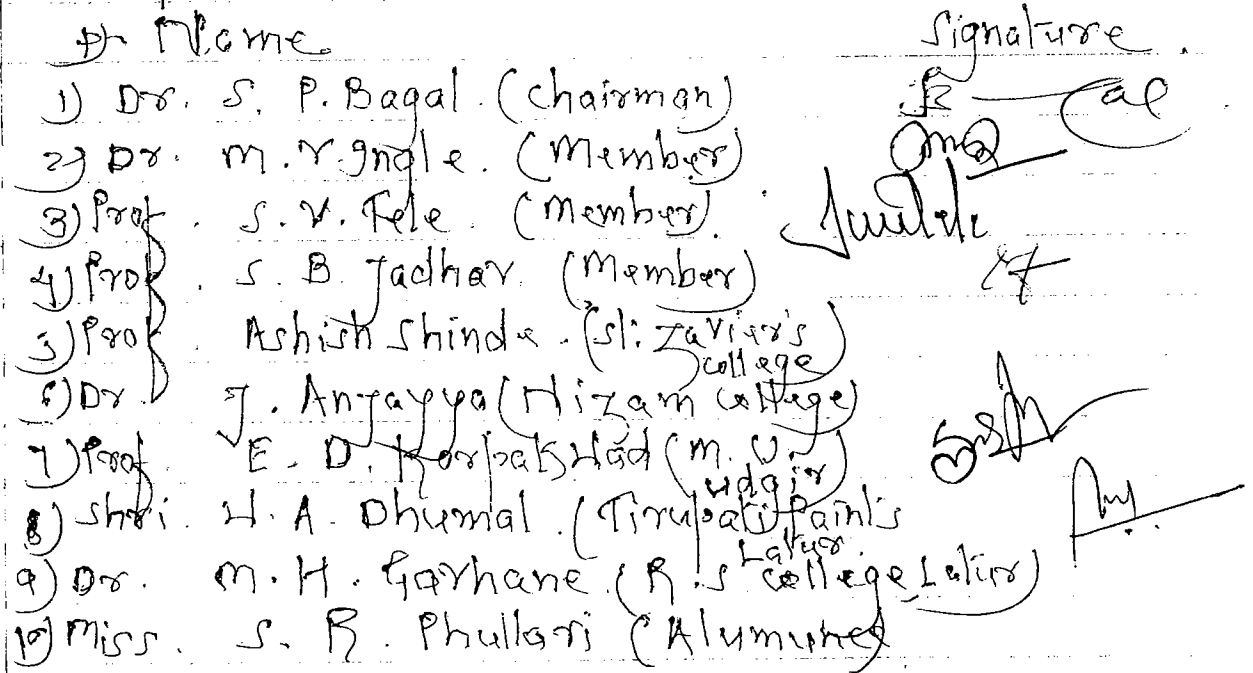 Name Signature
1) Dr. S. P. Bagal. (Chairman)
2) Dr. M. V. Ingle. (Member)
3) Prof. S. V. Tele (Member)
4) Prof. S. B. Jadhav (Member)
5) Prof Ashish Shinde. (St. Zavier's
college)
6) Dr J. Anjayya (Nizam College)
7) Prof. E. D. (M. U.
Udgir)
8) Shri. H. A. Dhumal. (Tirupati Paints
Latur.
9) Dr. M. H. Gavhane (R. S College Latur)
10) Miss. S. R. Phullari (Alumunes